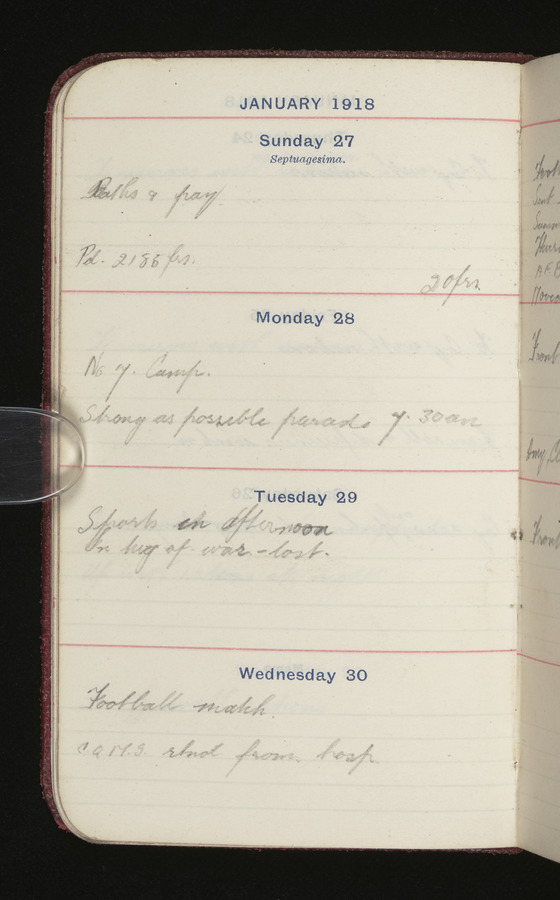 JANUARY 1918
Sunday 27
Septuagesima.
Baths & pay
Pd. 2185 frs.
20frs
Monday 28
No 7. Camp.
Strong as possible parade 7.30am
Tuesday 29
Sports in afternoon
In tug of war - lost.
Wednesday 30
Football match.
C.Q.M.S. rtnd from hosp
Foot
Sent
Front
Front